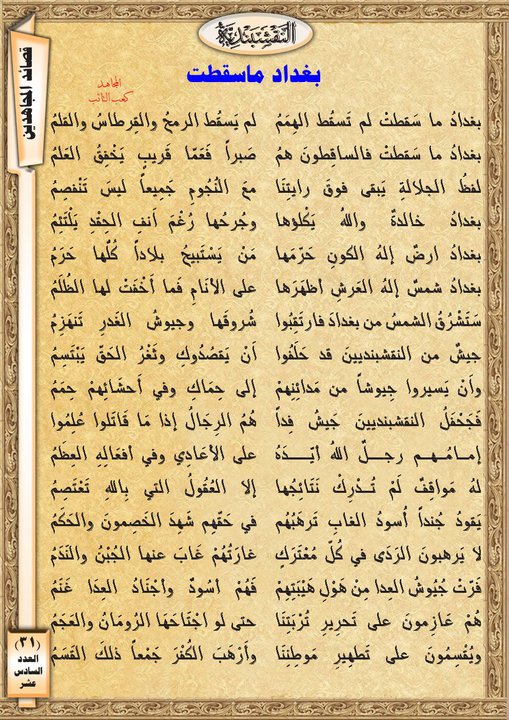 النقشبندية
بغداد ماسقطت
المجاهد
كعب التائب
قصائد المجاهدين
بغدادُ ما سَقطتْ لم تَسقُط الهِمَمُ لم يَسقُط الرمحُ والقِرطاسُ والقلمُ
بغدادُ ما سَقطَتْ فالساقِطونَ هُمُ صبراً فَعَمّا قَريبٍ يَخْفِقُ العَلمُ
لفظُ الجلالةِ يَبقى فوقَ رايتِنا معَ النُجُومِ جَمِيعاً ليسَ تَنْفصِمُ
بغدادُ خالدةٌ واللهُ يَكْلؤها وجُرحُها رُغْمَ أنفِ الحِقْدِ يَلْتَئِمُ
بغدادُ ارضٌ إلهُ الكونِ حَرّمَها مَنْ يَسْتَبِيحُ بلاداً كُلُّها حَرَمُ
بغدادُ شمسٌ إلهُ العَرشِ أظهَرَها على الأنَامِ فَما أخْفَتْ لها الظُلَمُ
سَتَشْرُقُ الشمسُ من بغدادَ فارتَقِبُوا شُروقَها وجيوشُ الغَدرِ تَنهَزِمُ
جيشٌ من النقشبنديينَ قد حَلَفُوا أنْ يَقصُدُوكِ وثَغْرُ الحَقّ يَبْتَسِمُ
وأنْ يَسيروا جيوشاً من مَدائِنِهِمْ إلى حِمَاكِ وفي أحشَائِهِمْ حِمَمُ
فَجَحْفَلُ النقشبنديينَ جَيشُ فِداً هُمُ الرِجَالُ إذا مَا قَاتَلُوا عُلِمُوا
إمامُهم رجلٌ اللهُ أيّدَهُ على الأعَادِي وفي أفعَالِهِ العِظَمُ
لهُ مَواقفٌ لَمْ تُدرِكْ نَتَائِجُها إلا العُقُولُ التي بِاللهِ تَعْتَصِمُ
يَقودُ جُنداً أُسودُ الغابِ تَرهَبُهُم في حَقّهِم شَهِدَ الخَصِمونَ والحَكَمُ
لا يَرهبونَ الرَدَى في كُلّ مُعْتَرَكٍ غارَتُهُمْ غَابَ عنها الجُبْنُ والنَدَمُ
فَرّتْ جُيُوشُ العدا مِنْ هَوْلِ هَيْبَتِهِمْ فَهُمْ أسُودٌ وأجْنَادُ العِدَا غَنَمُ
هُمْ عَازِمونَ على تَحرِيرِ تُرْبَتِنَا حتى لو اجْتَاحَهَا الرُومَانُ والعَجَمُ
ويُقْسِمُونَ على تَطهِيرِ مَوطِنِنَا وأرْهَبَ الكُفْرَ جَمْعاً ذلكَ القَسَمُ
(٣١)
العدد
السادس
عشر